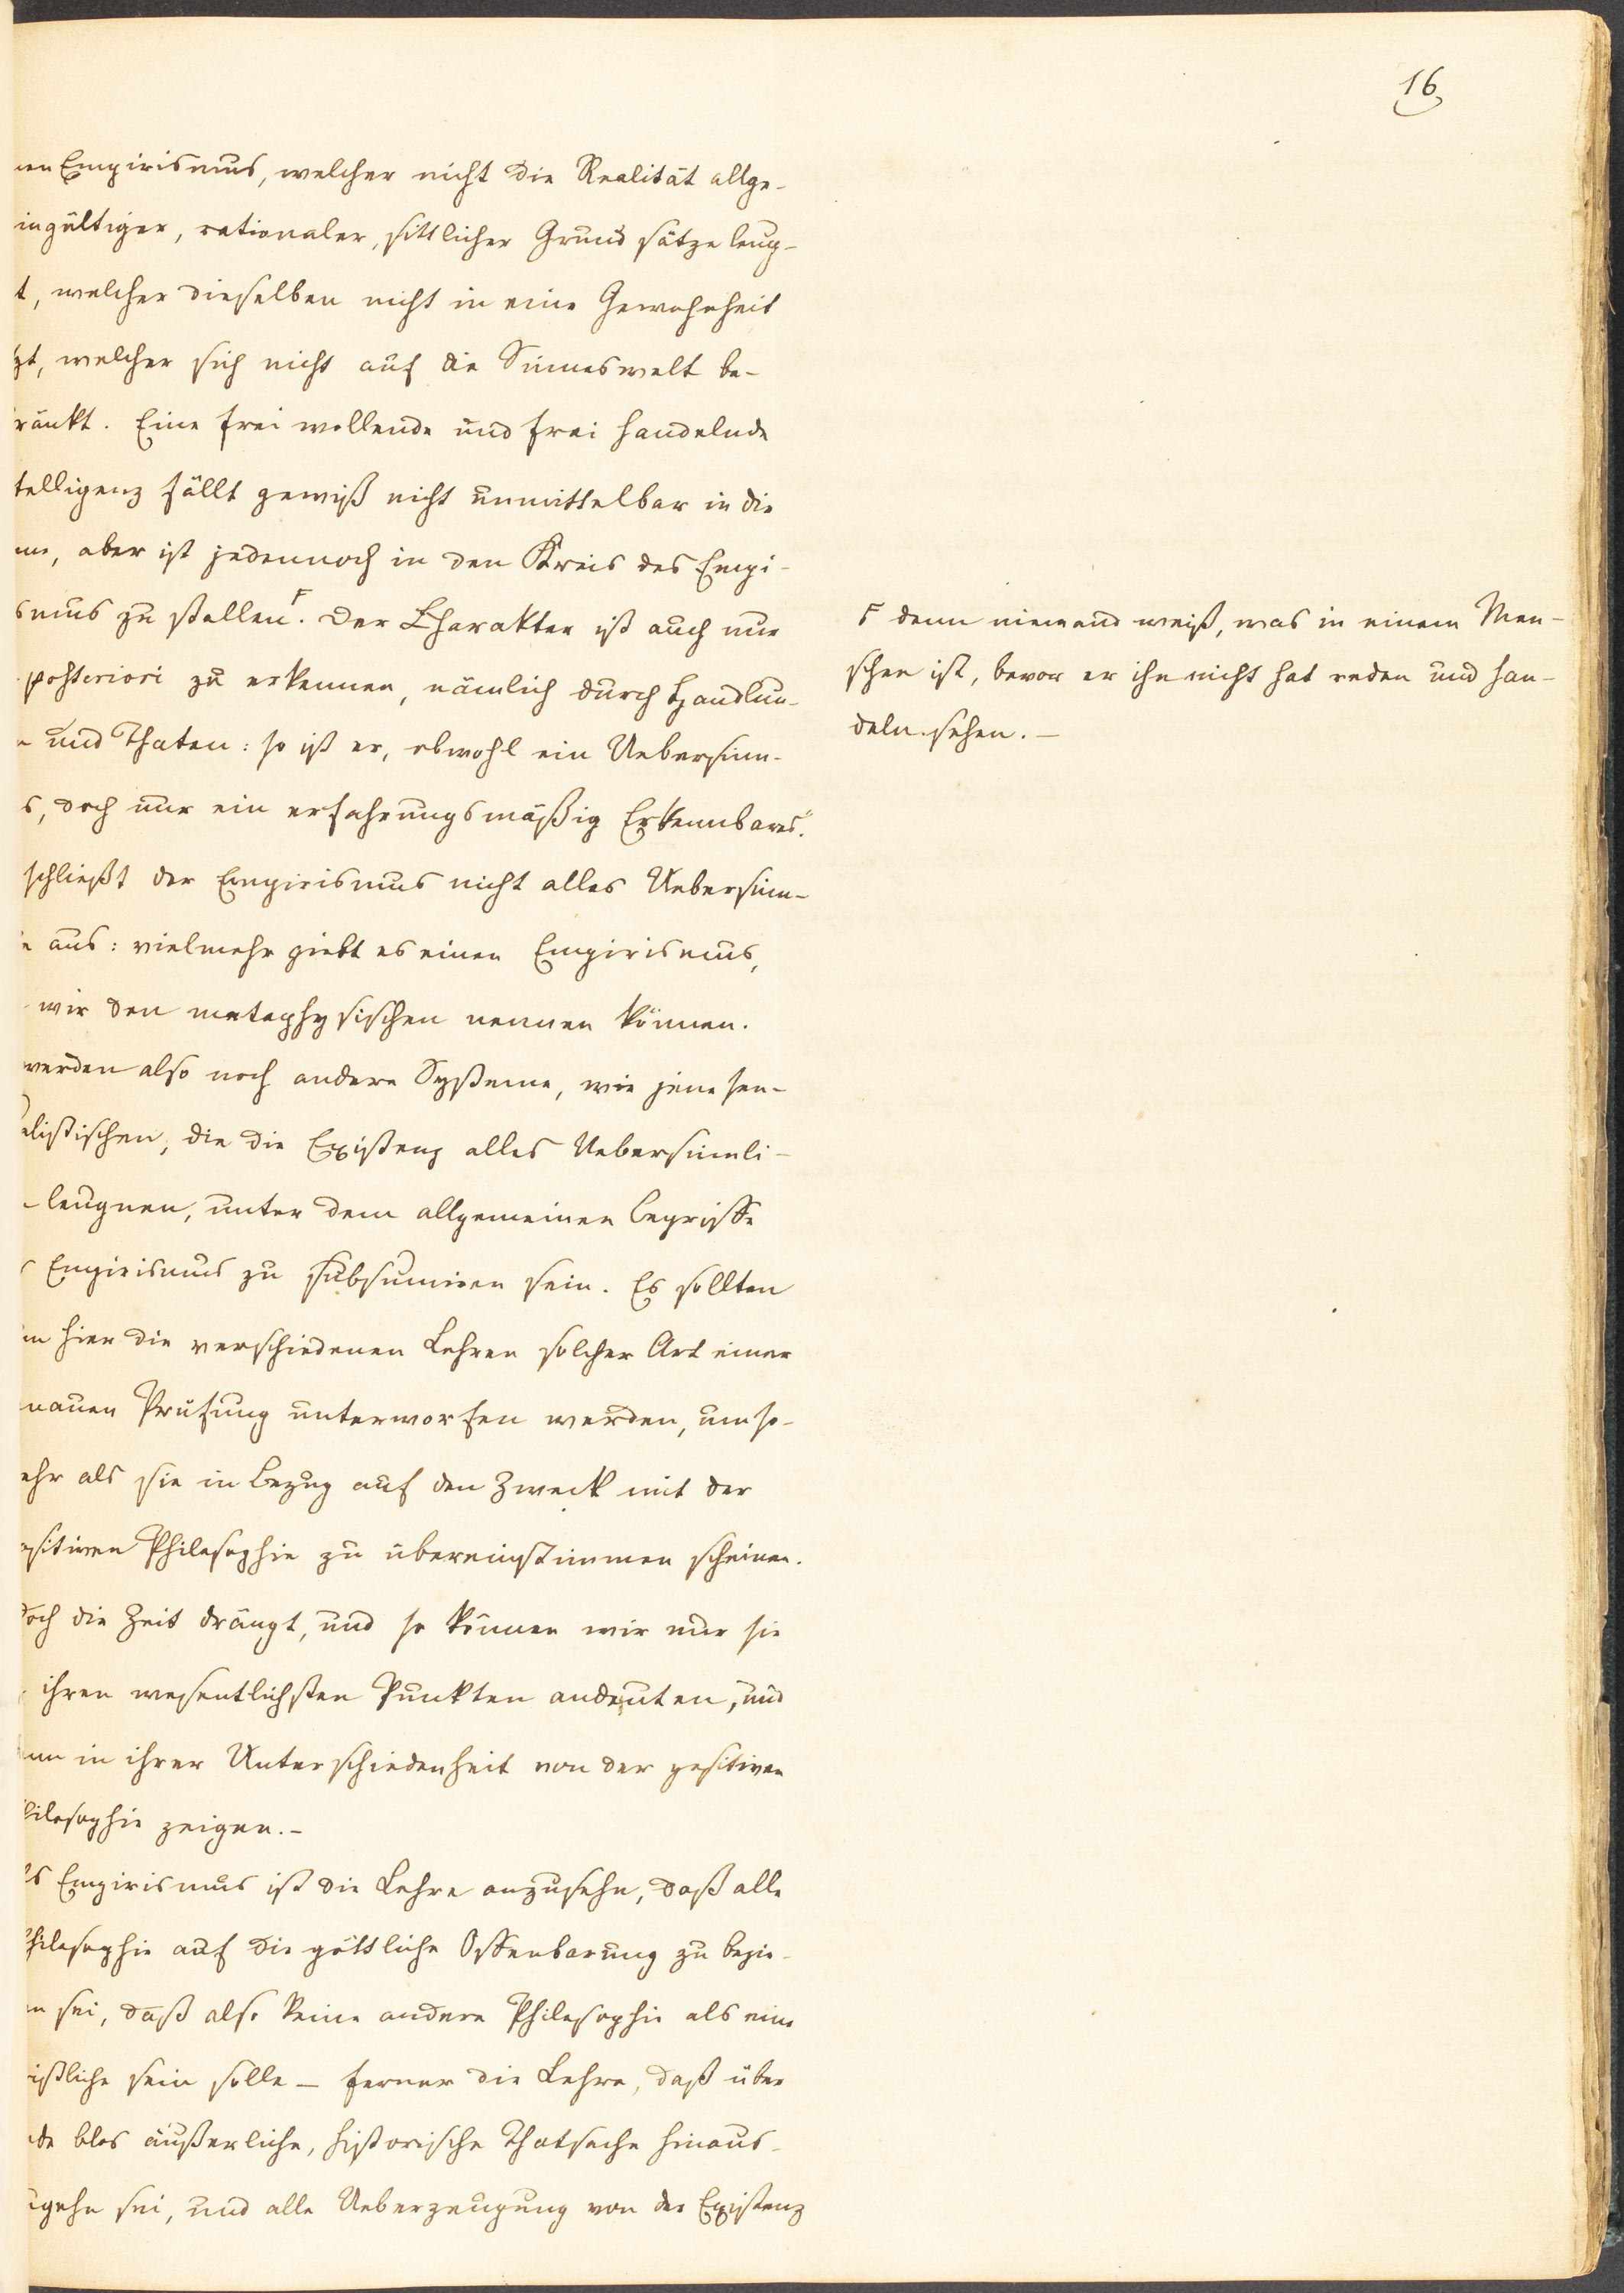 16
nen Empirismus, welcher nicht die Realität allge-
ingültiger, rationaler, sittlicher Grundsätze leug-
t, welcher dieselben nicht in eine Gewohnheit
zt, welcher sich nicht auf die Sinneswelt be-
ränkt. Eine frei wollende und frei handelnde
telligenz fällt gewiß nicht unmittelbar in die
ne, aber ist jedennoch in den Kreis des Empi-
smus zu stellen⌈. Der Charakter ist auch nur
posteriori zu erkennen, nämlich durch Handlun-
n und Thaten: so ist er, obwohl ein Uebersinn-
s, doch nur ein erfahrungsmäßig Erkennbares.
schließt der Empirismus nicht alles Uebersinn-
e aus: vielmehr giebt es einen Empirismus,
wir den metaphysischen nennen können.
werden also noch andere Systeme, wie jene sen-
alistischen, die die Existenz alles Uebersinnli-
leugnen, unter dem allgemeinen Begriffe
s Empirismus zu subsumiren sein. Es sollten
n hier die verschiedenen Lehren solcher Art einer
nauen Prüfung unterworfen werden, um so-
ehr als sie in Bezug auf den Zweck mit der
ositiven Philosophie zu übereinstimmen scheinen.
doch die Zeit drängt, und so können wir nur sie
ihren wesentlichsten Punkten andeuten, und
nn in ihrer Unterschiedenheit von der positiven
hilosophie zeigen.-
ls Empirismus ist die Lehre anzusehn, daß alle
hilosophie auf die göttliche Offenbarung zu bezie-
n sei, daß also keine andere Philosophie als eine
ristliche sein solle – ferner die Lehre, daß über
de blos äußerliche, historische Thatsache hinaus-
ugehn sei, und alle Ueberzeugung von der Existenz
⌈ denn niemand weiß, was in einem Men-
schen ist, bevor er ihn nicht hat reden und han-
deln sehen. –